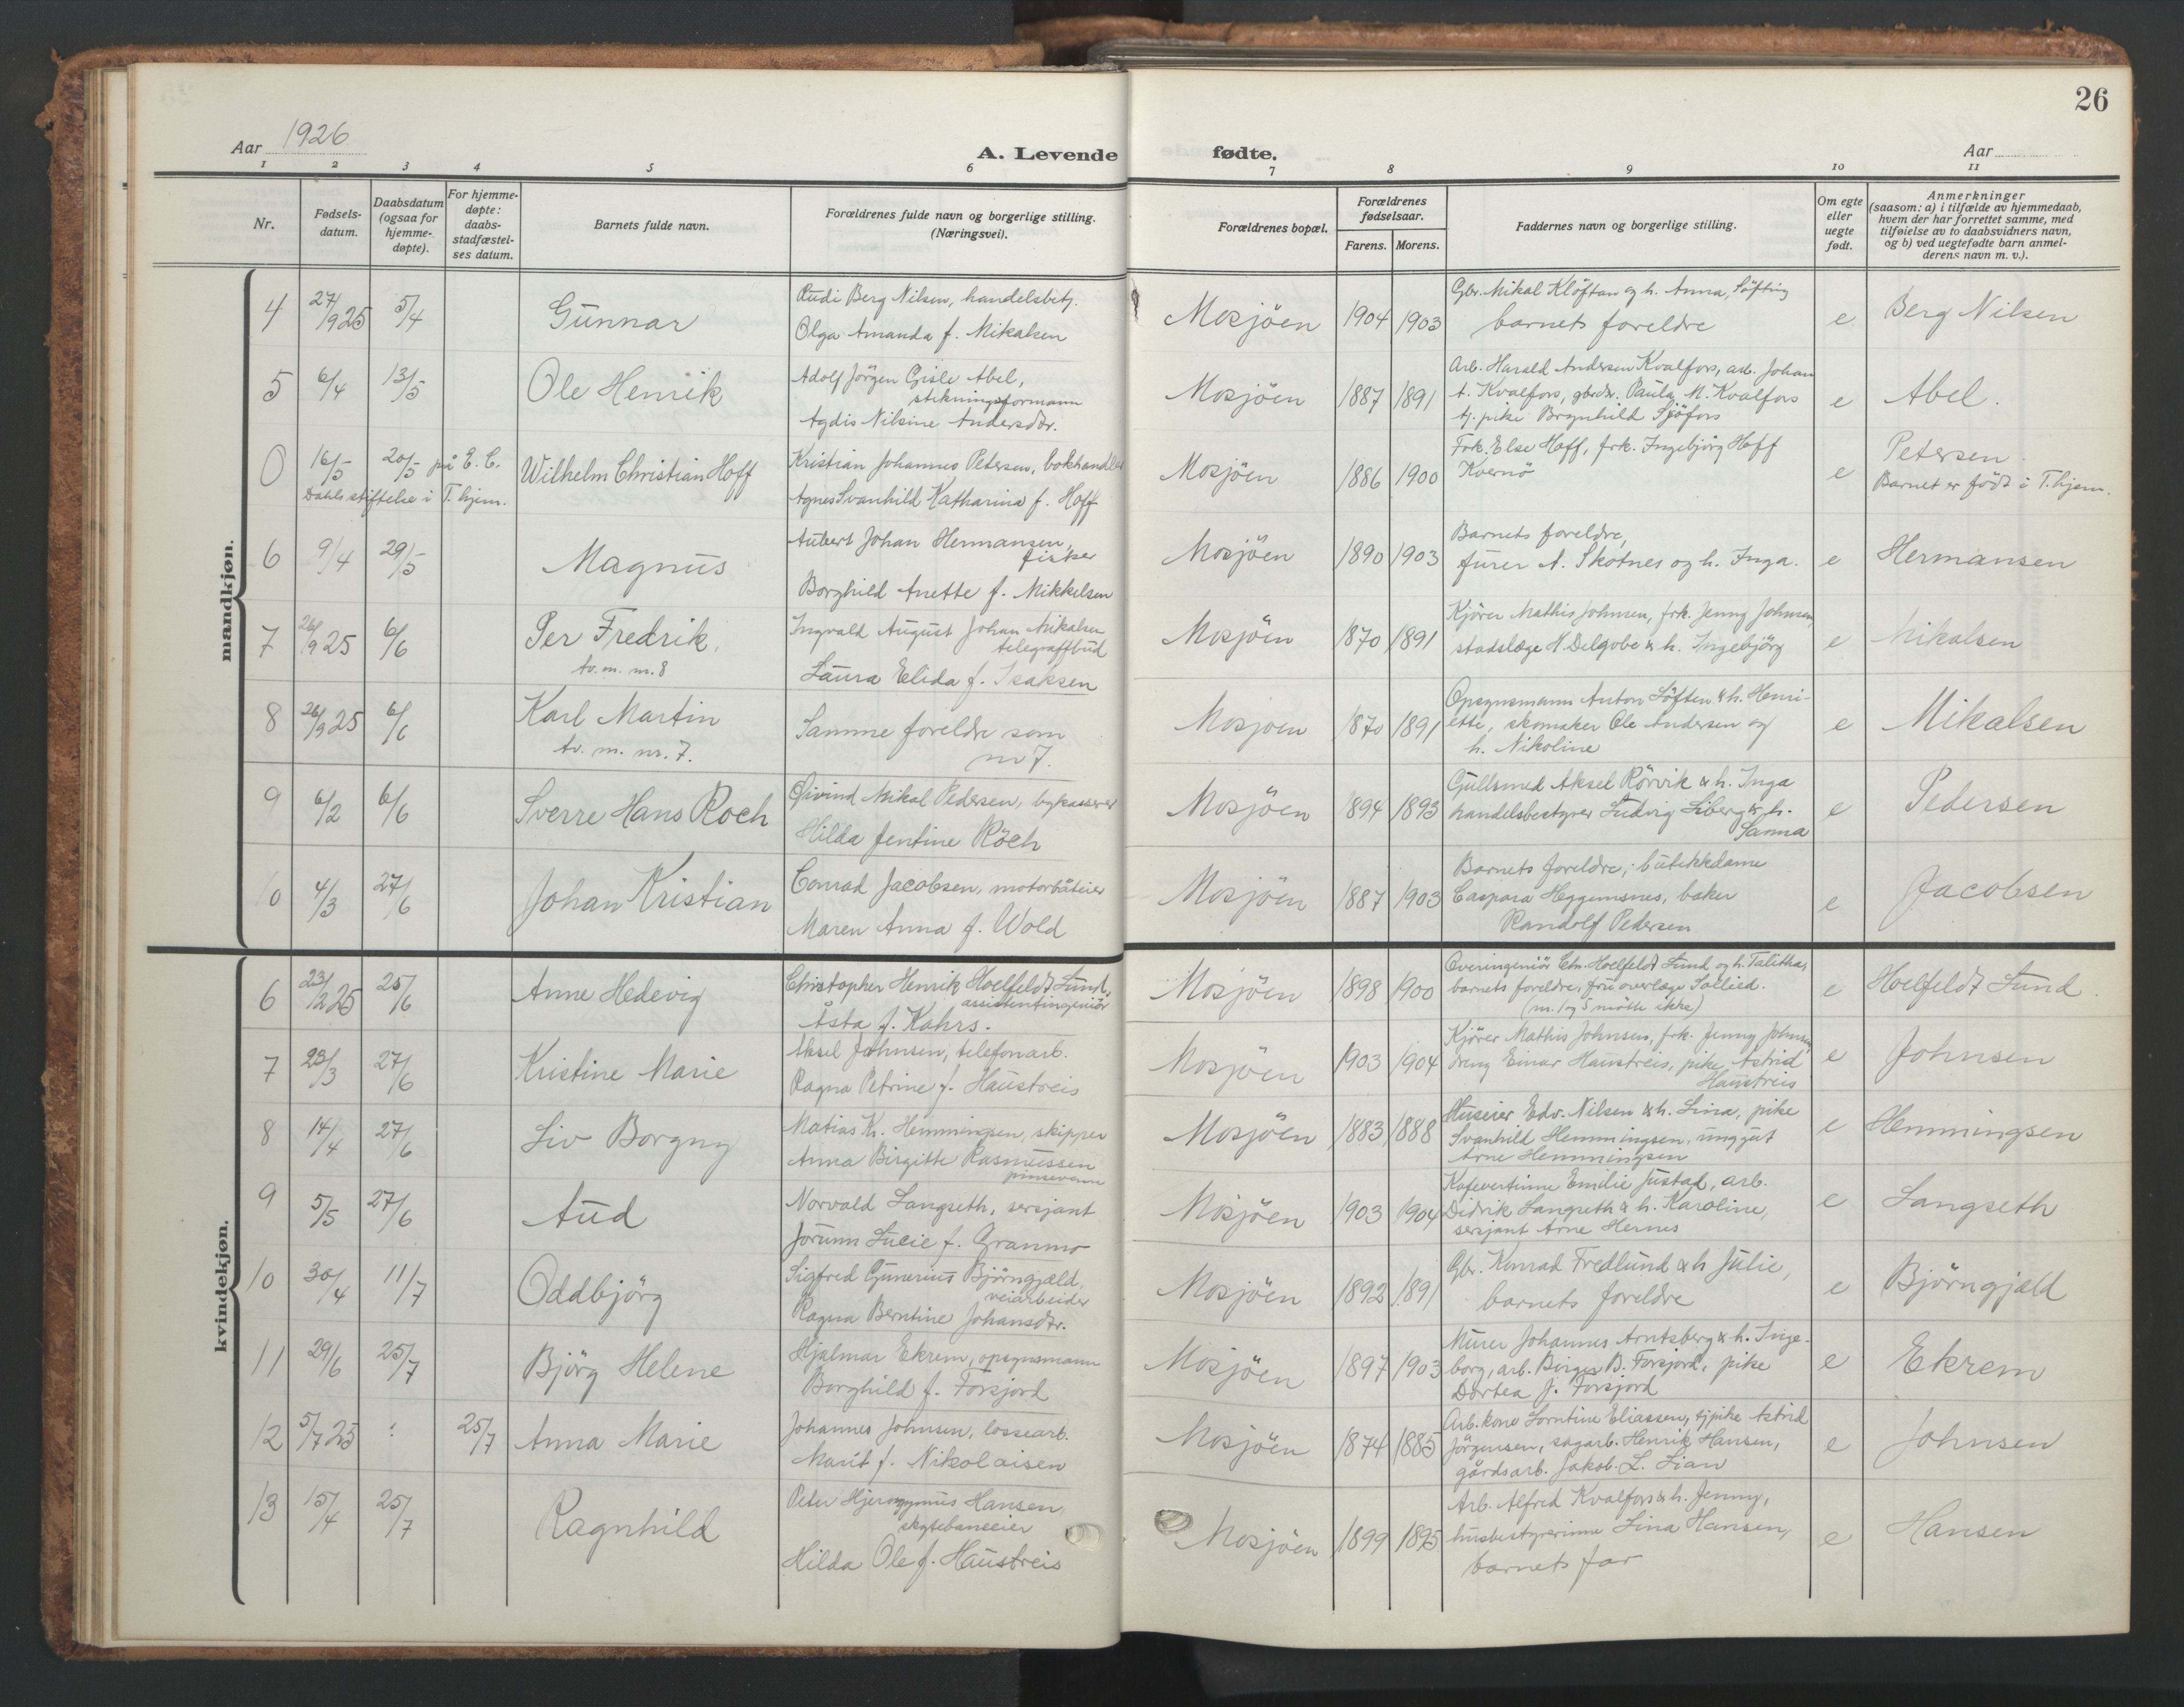 26
Aar 1926
A. Levende fødte.
Aar
1 2 3 4 5 6 7 8 9 10 11
Nr.
Fødsels-
datum.
Daabsdatum
(ogsaa for
hjemme-
døpte).
For hjemme-
døpte:
daabs-
stadfæstel-
ses datum.
Barnets fulde navn.
Forældrenes fulde navn og borgerlige stilling.
(Næringsvei).
Forældrenes bopæl.
Forældrenes
fødselsaar.
Farens. Morens.
Faddernes navn og borgerlige stilling.
Om egte
eller
uegte
født.
Anmerkninger
(saasom: a) i tilfælde av hjemmedaab,
hvem der har forrettet samme, med
tilføielse av to daabsvidners navn,
og b) ved uegtefødte barn anmel-
derens navn m. v.).
mandkjøn.
4 27/9 25 5/4 Gunnar
Rudi Berg Nilsen, handelsbetj.
Olga Amanda f. Mikalsen
Mosjöen 1904 1903
Gbr. Mikal Klöftan og h. Anna, Söfting
barnets foreldre
e Berg Nilsen
5 6/4 13/5 Ole Henrik
Adolf Jörgen Gisle Abel,
stikningsformann
Agdis Nilsine Andersdtr.
Mosjöen 1887 1891
Arb. Harald Andersen Kvalfors, arb. Johan
A. Kvalfors, gbrdr. Paula M. Kvalfors
tj. pike Brynhild Sjöfors
e Abel.
0 16/5 20/5 på E. C.
Dahls stiftelse i T.hjem.
Wilhelm Christian Hoff
Kristian Johannes Petersen, bokhandler
Agnes Svanhild Katharina f. Hoff
Mosjöen 1886 1900
Frk. Else Hoff, frk. Ingebjörg Hoff
Kvernö
e Petersen.
Barnet er född i T.hjem.
6 9/4 29/5 Magnus
Aubert Johan Hermansen,
fisker
Borghild Anette f. Mikkelsen
Mosjöen 1890 1903
Barnets foreldre,
furer A. Skotnes og h. Inga.
e Hermansen
7 26/9 25 6/6 Per Fredrik,
tv. m. nr. 8
Ingvald August Johan Mikalsen
telegraffbud
Laura Elida f. Isaksen
Mosjöen 1870 1891
Kjörer Mathis Johnsen, frk. Jenny Johnsen,
stadslæge H Delgobe & h. Ingebjörg
e Mikalsen
8 26/9 25 6/6 Karl Martin
tv. m. nr. 7.
Samme foreldre som
nr 7.
Mosjoen 1870 1891
Opsynsmann Anton Söften & h. Henri-
ette, skomaker Ole Andersen og
h. Nikoline
e Mikalsen
9 6/2 6/6 Sverre Hans Roch
Øivind Mikal Pedersen, bykasserer
Hilda Jentine Röch
Mosjöen 1894 1893
Gullsmed Aksel Rörvik & h. Inga
handelsbestyrer Ludvig Liberg & h.
Sanna
e Pedersen
10 4/3 27/6 Johan Kristian
Conrad Jacobsen, motorbåteier
Maren Anna f. Wold
Mosjöen 1887 1903
Barnets foreldre, butikkdame
Caspara Heggemsnes, baker
Randolf Pedersen
e Jacobsen
kvindekjøn.
6 25/6 Anne Hedevig
Christopher Henrik Hoelfeldt Lund,
assistentingeniör
Åsta f. Kahrs.
Mosjöen 1898 1900
Overingeniör Chr. Hoelfeldt Lund og h. Talitha,
barnets foreldre, fru overlæge Sollied.
(nr. 1 og 5 mötte ikke)
e Hoelfeldt Lund.
7 23/3 27/6 Kristine Marie
Aksel Johnsen, telefonarb.
Ragna Petrine f. Haustreis
Mosjöen 1903 1904
Kjörer Mathis Johnsen, frk. Jenny Johnsen
dreng Einar Haustreis, pike Astrid
Haustreis
e Johnsen
8 14/4 27/6 Liv Borgny
Matias K. Hemmingsen, skipper
Anna Birgitte Rasmussen
pinseven
Mosjöen 1883 1888
Huseier Edv. Nilsen & h. Lina, pike
Svanhild Hemmingsen, unggut
Arne Hemmingsen
e Hemmingsen
9 5/5 27/6 Aud
Norvald Langseth, sersjant
Jorunn Lucie f. Granmo
Mosjöen 1903 1904
Kafevertinne Emilie Justad, arb.
Didrik Langseth & h. Karoline,
sersjant Arne Hernes
e Langseth
10 30/4 11/7 Oddbjörg
Sigfred Gunerius Björngjæld,
veiarbeider
Ragna Berntine Johansdtr.
Mosjöen 1892 1891
Gbr. Konrad Fredlund & h Julie,
barnets foreldre
e Björngjeld
11 29/6 25/7 Björg Helene
Hjalmar Ekrem, opsynsmann
Borghild f. Forsjord
Mosjöen 1897 1903
Murer Johannes Arntsberg & h. Inge-
borg, arb. Birger B. Forsjord, pike
Dortea J. Forsjord
e Ekrem
12 5/7 25 : 25/7 Anna Marie
Johannes Johnsen, lossearb.
Marit f. Nikolaisen
Mosjöen 1874 1885
Arb. kone Lorntine Eliassen, tjpike Astrid
Jörgensen, sagarb. Henrik Hansen,
gårdsarb. Jakob. L. Lian
e Johnsen
13 15/4 25/7 Ragnhild
Peter Hjeronymus Hansen,
skytebaneeier
Hilda Ole f. Haustreis
Mosjöen 1899 1895
Arb. Alfred Kvalfors & h. Jenny,
husbestyrerinne Lina Hansen,
barnets far
e Hansen